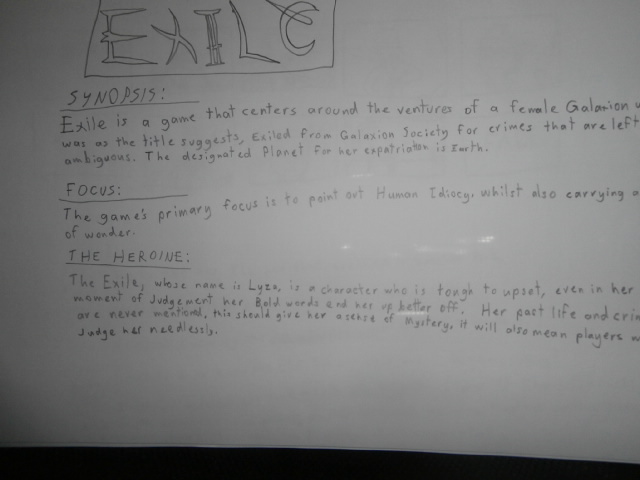 EXILE
SYNOPSIS:
Exile is a game that centers around the ventures of a female Galaxion
was as the title suggests, Exiled from Galaxion Society for crimes that are left
ambiguous. The designated Planet for her expatriation is Earth.
FOCUS:
The game's primary focus is to point out Human Idiocy, whilst also carrying a
of wonder.
THE HEROINE:
The Exile, whose name is Lyza, is a character who is tough to upset, even in her
moment of Judgement her Bold words end her up better off. Her past life and
are never mentioned, this should give her a sense of Mystery, it will also mean players
Judge her needlessly.